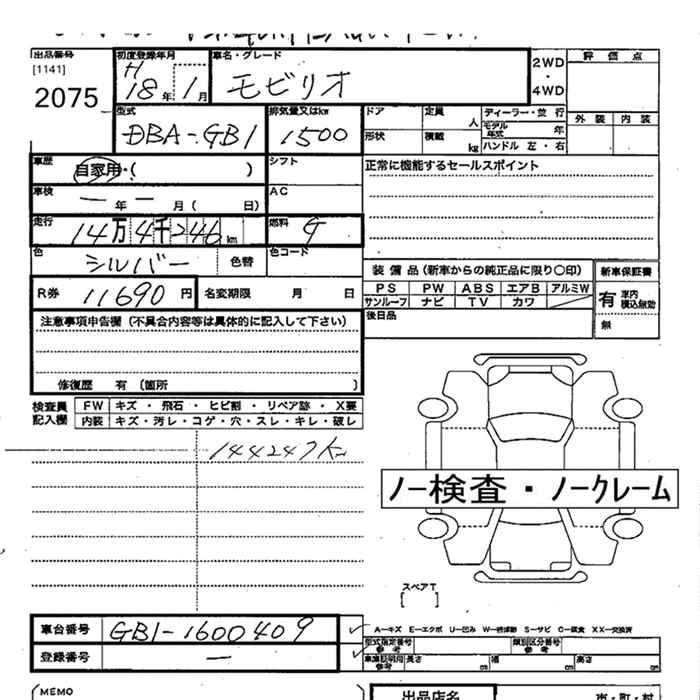 出品番号 初度登録年月 車名・グレード 評価点
[1141] H 2WD
2075 18年 1月 モビリオ ・4WD
型式 排気量又はkw ドア 定員 人 ディーラー・並行 外装 内装
DBA-GB1 1500 形状 積載 kg モデル年式 年
ハンドル 左・右
車歴 自家用・( ) シフト 正常に機能するセールスポイント
車検 ー年ー月( 日) AC
走行 14万4千246km 燃料 G
色 シルバー 色替 色コード
装備品(新車からの純正品に限り〇印) 新車保証書
R券 11690円 名変期限 月 日 PS PW ABS エアB アルミW 有 車内積込無効
サンルーフ ナビ TV カワ
注意事項申告欄(不具合内容等は具体的に記入して下さい) 後日品 無
修復歴 有(箇所 )
検査員 FW キズ・飛石・ヒビ割・リペア跡・X要
記入欄 内装 キズ・汚レ・コゲ・穴・スレ・キレ・破レ
144247km
ノー検査・ノークレーム
スペアT
[ ]
車台番号 GB1-1600409 A-キズ E-エクボ U-凹み W-補修跡 S-サビ C-腐食 XX-交換済
型式指定番号 参考 類別区分番号 参考
登録番号 ー 車庫証明用 参考 長さ cm 幅 cm 高さ cm
MEMO 出品店名 市・町・村